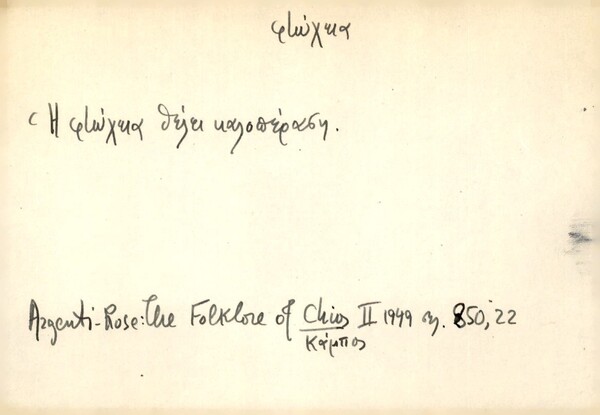 φτώχεια
Ἡ φτώχεια θέλει καλοπέραση.
Argenti-Rose: The Folklore of Chios II 1949 σ. 850, 22
Κάμπος